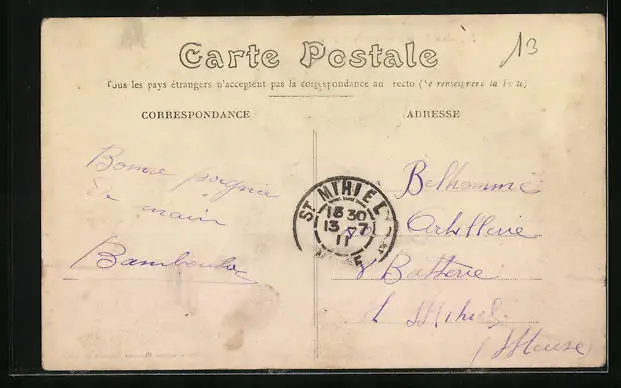 Carte Postale
13
Tous les pays étrangers n'acceptent pas la correspondance au recto (Se renseigner à la Poste)
CORRESPONDANCE
ADRESSE
Bonne poignée
de main
Bamboula
ST MIHIEL
18 30
13 - 7
11
MEUSE
Belhomme
Artillerie
Batterie
St Mihiel
(Meuse)